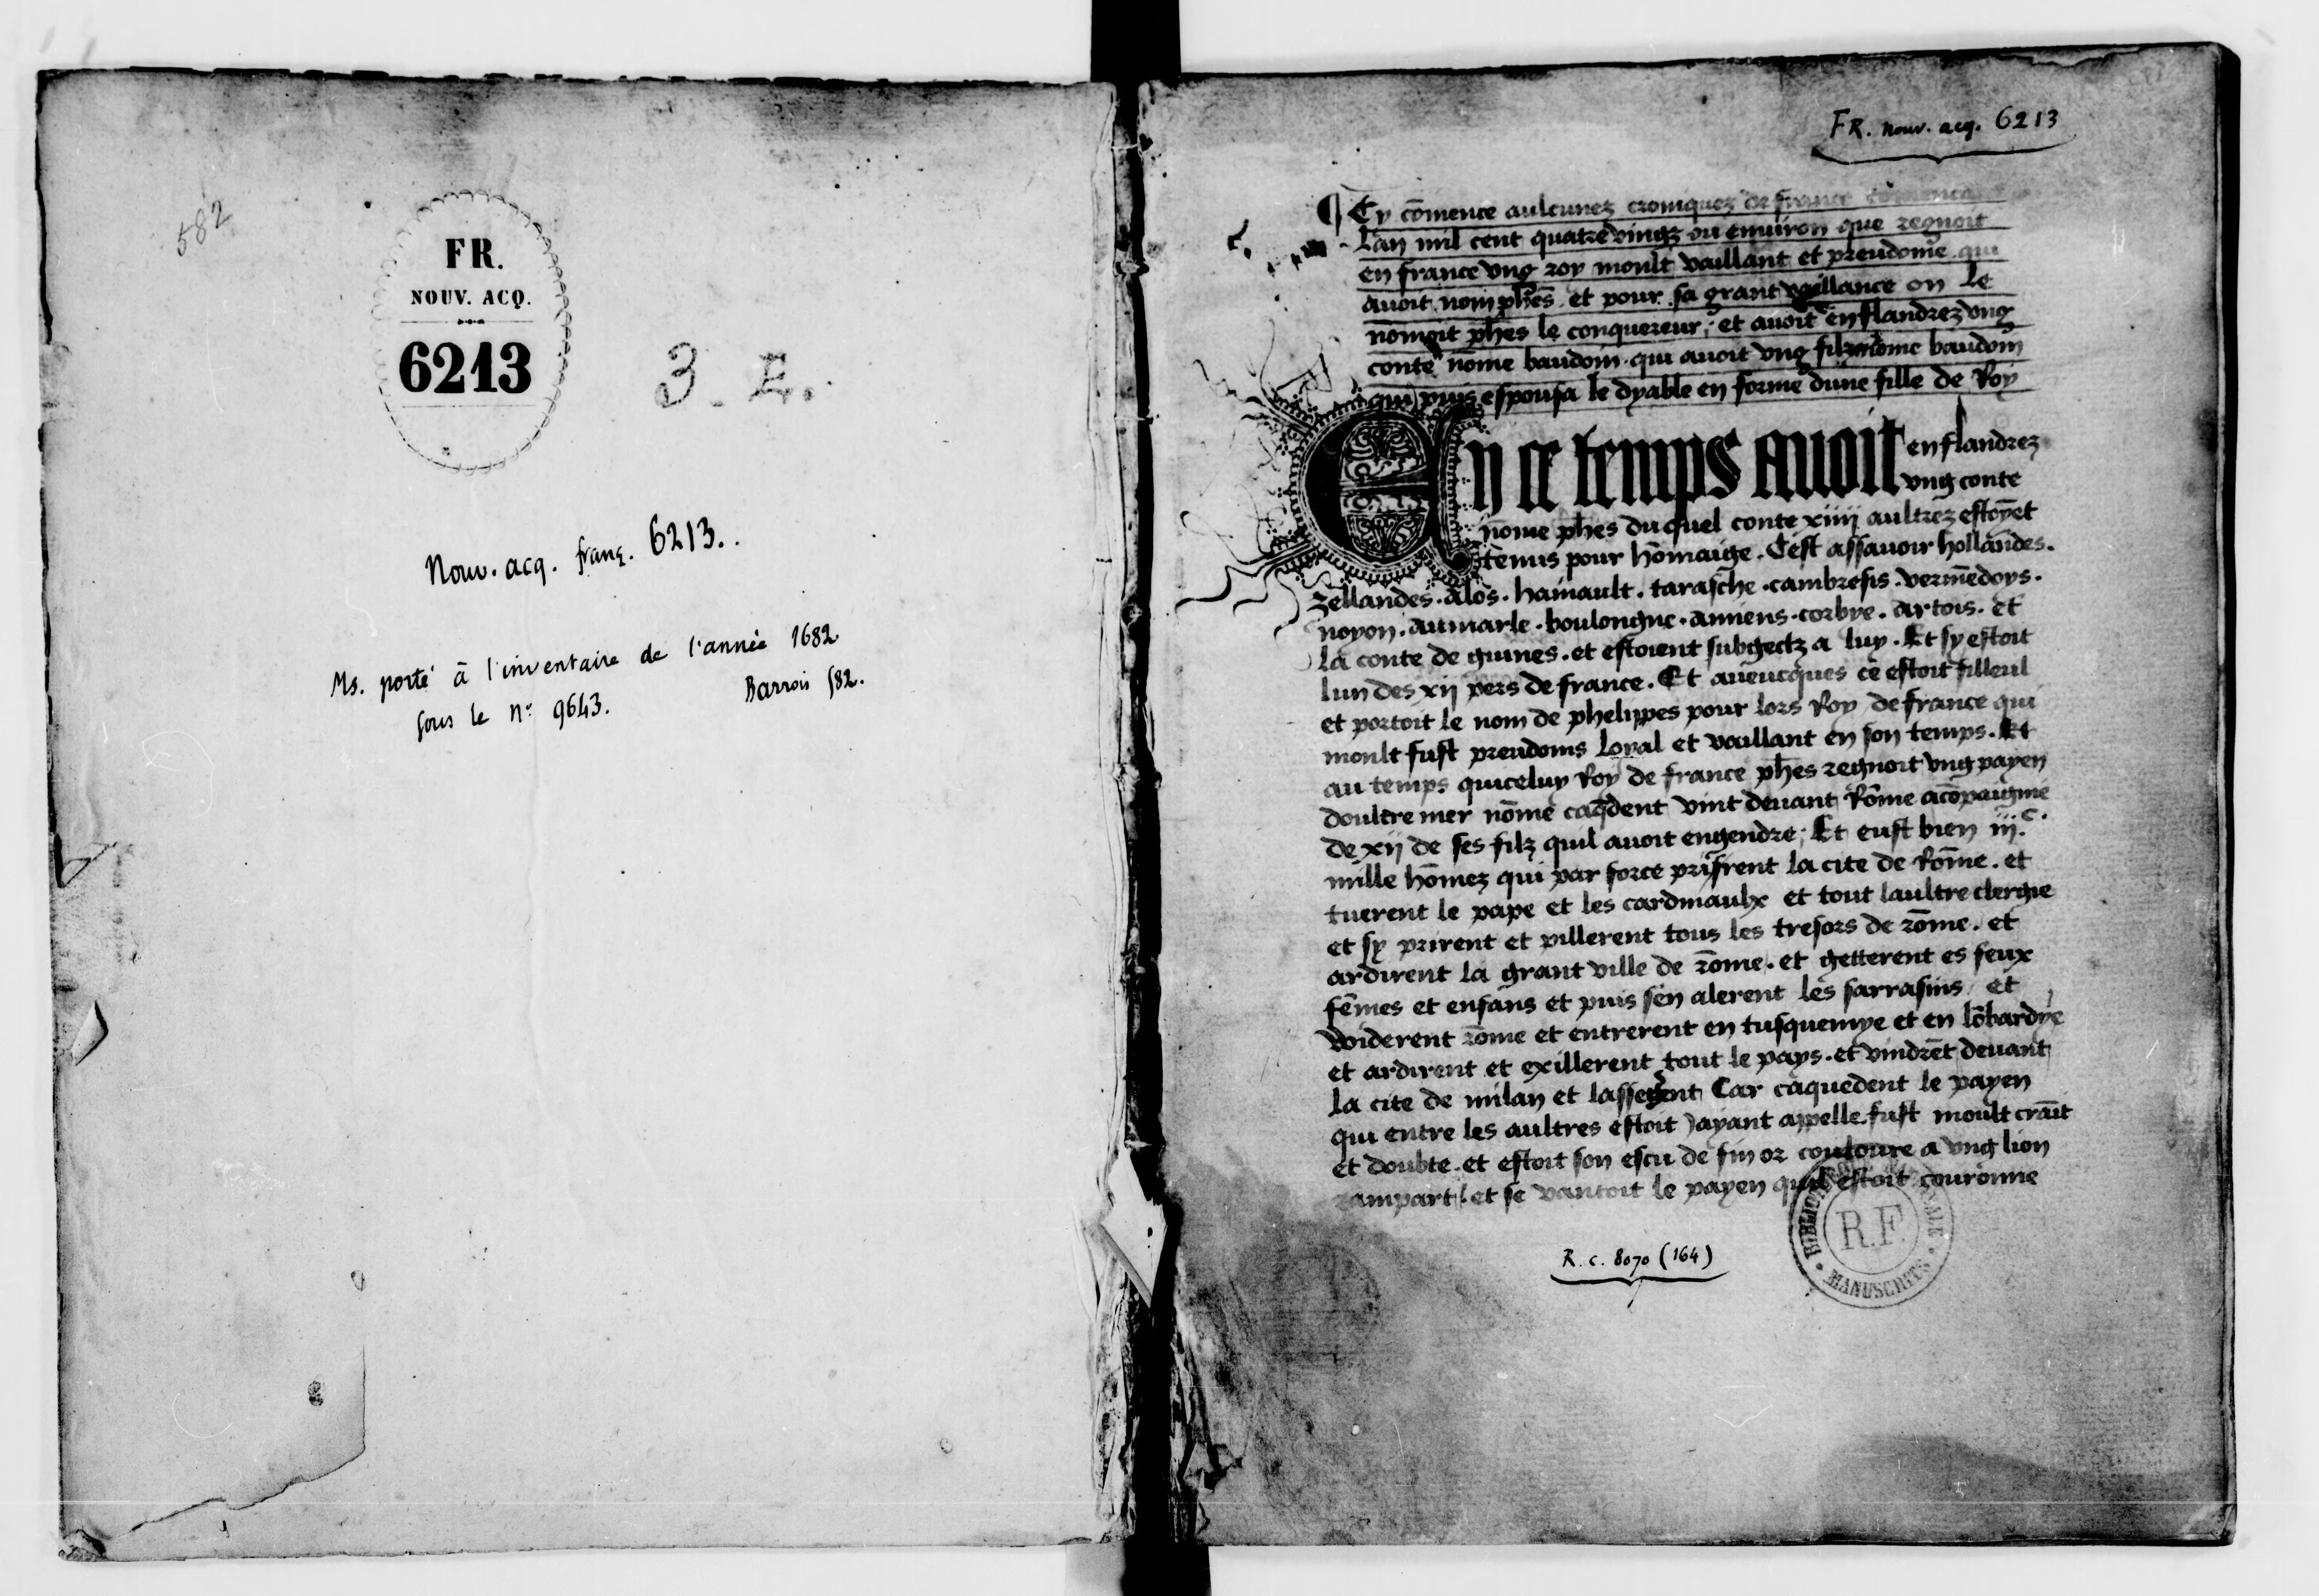 582
FR.
NOUV. ACQ.
6213
3. E.
Nouv. acq. franç. 6213.
Ms. porté à l'inventaire de l'année 1682
sous le n° 9643. Barrois 582.
FR. nouv. acq. 6213
¶ Cy cōmence aulcunez croniquez de france
Lan mil cent quatre vingz ou enuiron que regnoit
en france vng roy moult vaillant et preudome qui
auoit nom phēs et pour sa grant vaillance on le
nōmoit phēs le conquereur. et auoit en flandrez vng
conte nōme baudoin. qui auoit vng filz nōme baudoin
qui puis espousa le dyable en forme dune fille de Roy
En ce temps auoit en flandrez
vng conte
nōme phēs duquel conte xiiij aultrez estoyēt
tenus pour hōmaige. Cest assauoir hollandes.
zellandes. alos. hainault. tarasche. cambresis. vermēdoys.
noyon. aumarle. boulongne. amiens. corbye. artois. et
la conte de guines. et estoient subgectz a luy. Et sy estoit
lun des xij pers de france. Et aueucques ce estoit filleul
et portoit le nom de phelippes pour lors Roy de france qui
moult fust preudoms loyal et vaillant en son temps. Et
au temps quicelluy Roy de france phēs regnoit vng payen
doultre mer nōme caq̄dent vint deuant Rōme acōpaignie
de xij de ses filz quil auoit engendre. Et eust bien iij.c.
mille hōmez qui par force prisrent la cite de Rōme. et
tuerent le pape et les cardinaulx et tout laultre clergie
et sy prirent et pillerent tous les tresors de rōme. et
ardirent la grant ville de rōme. et getterent es feux
fēmes et enfans et puis sen alerent les sarrasins et
widerent rōme et entrerent en tusquemye et en lōbardye
et ardirent et exillerent tout le pays. et vindrēt deuant
la cite de milan et Car caquedent le payen
qui entre les aultres estoit Jayant appelle. fust moult craīt
et doubte. et estoit son escu de fin or couloure a vng lion
rampart. et se vantoit le payen quil estoit couronne
BIBLIOTHÈQUE NATIONALE
R.F.
MANUSCRITS
R. c. 8070 (164)